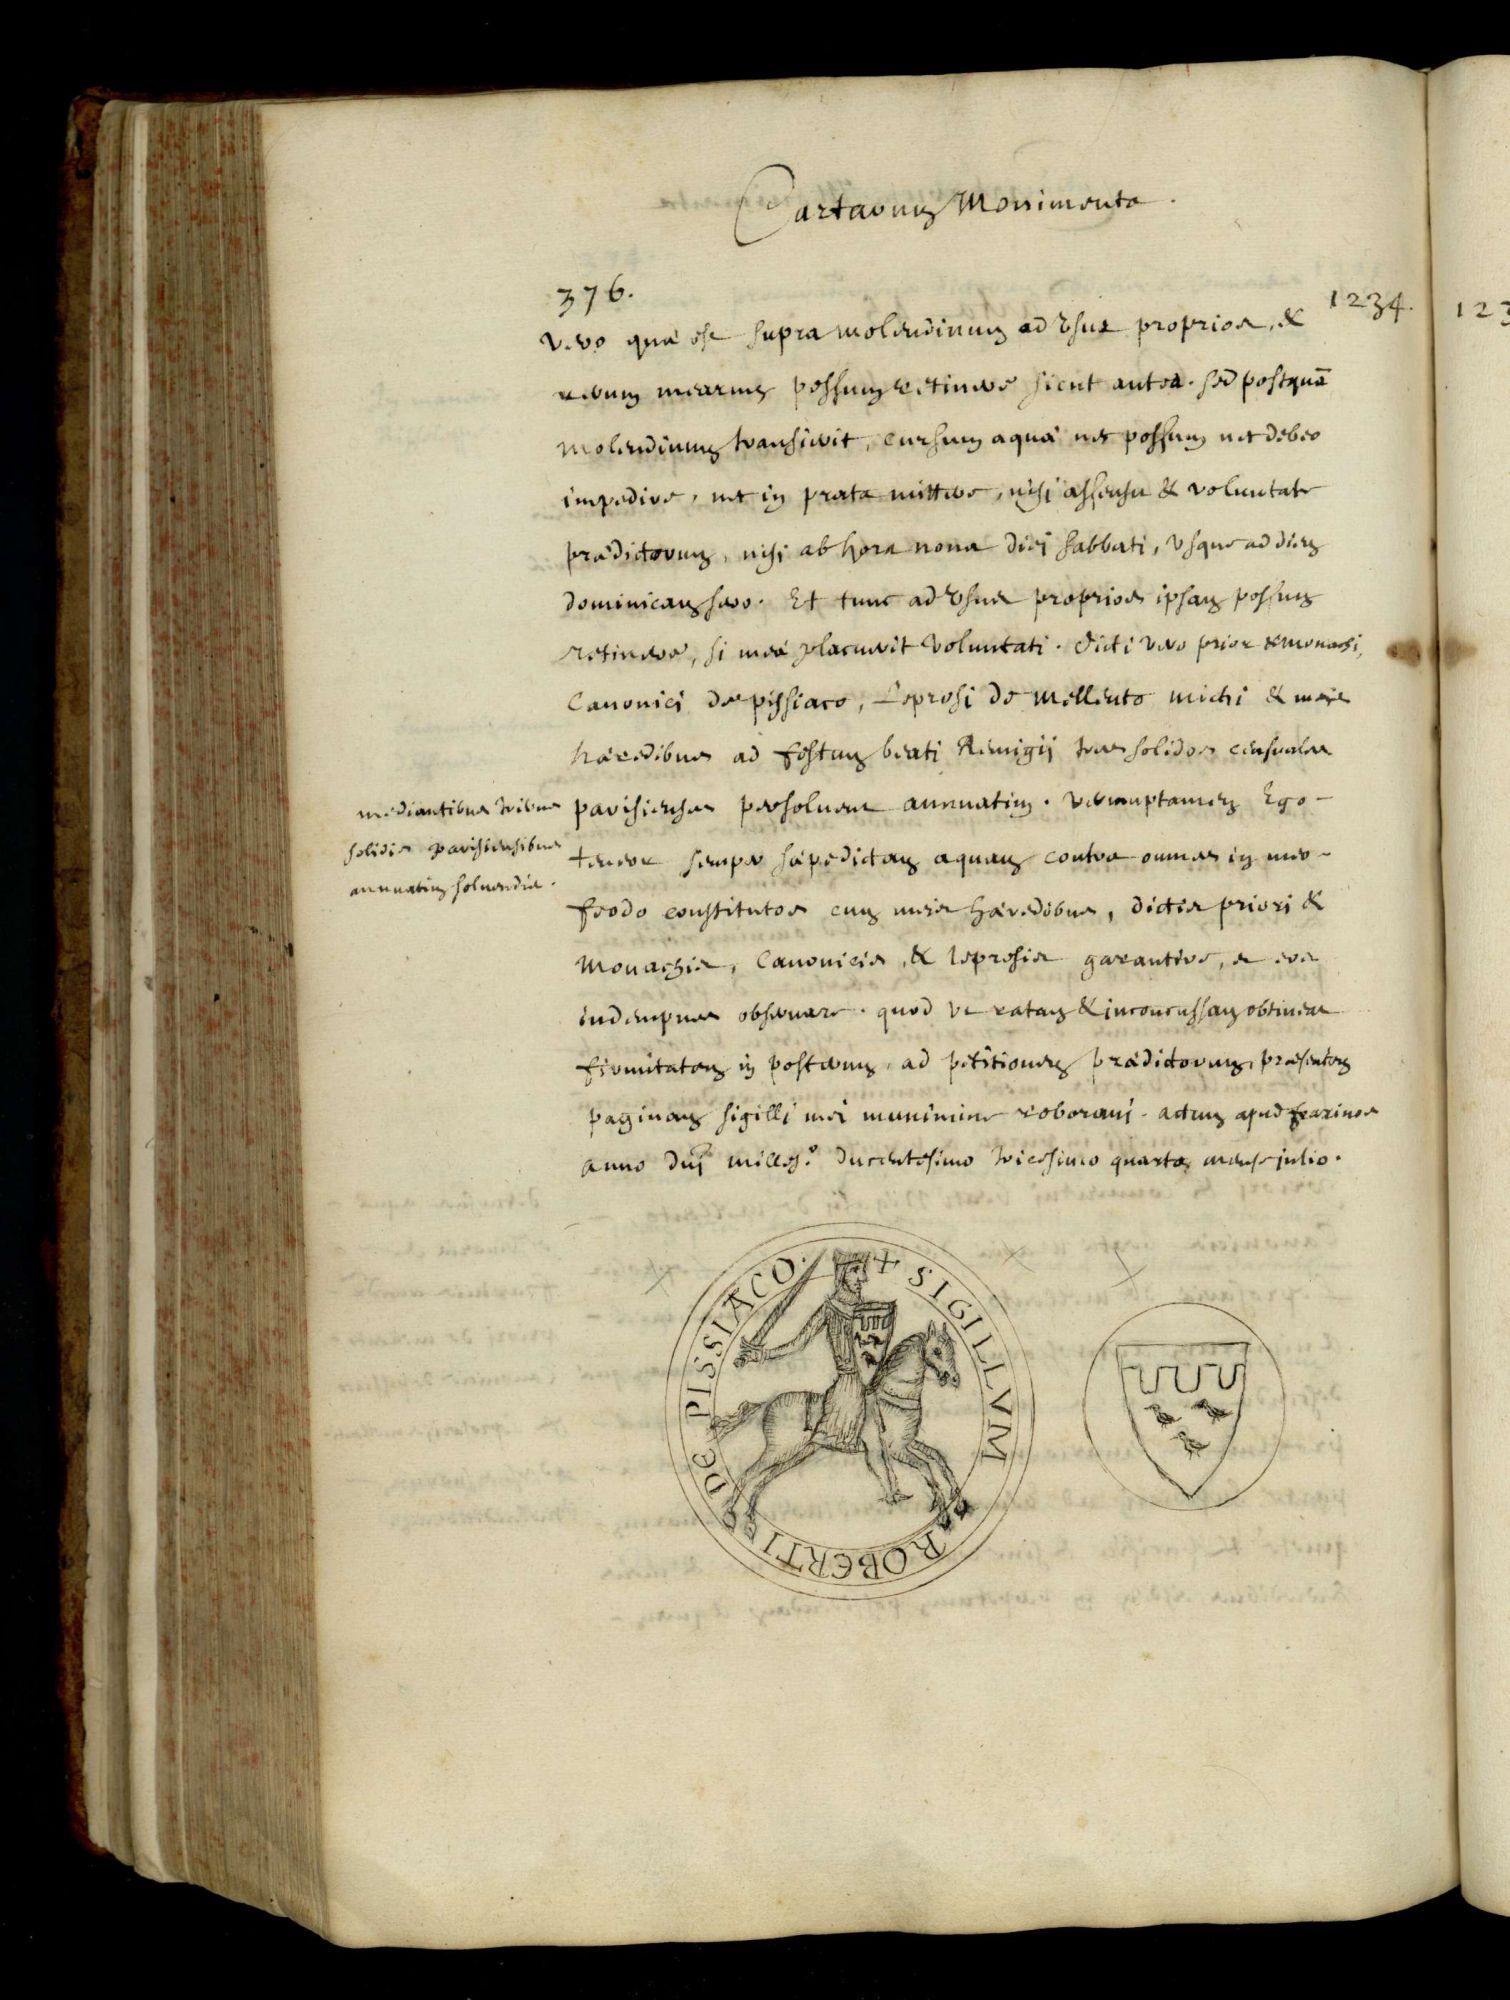 Cartarum Monimenta.
376.
1234.
123
vero quæ est supra molendinum ad vsus proprios, &
rerum mearum possum retinere sicut antea. sed postquā
molendinum transierit, cursum aquæ nec possum nec debeo
impedire, nec in prata mittere, nisi assensu & voluntate
prædictorum, nisi ab hora nona diei sabbati, vsque ad diem
dominicam sero. Et tunc ad vsus proprios ipsam possum
retinere, si meæ placuerit voluntati. dicti vero prior & monachi,
Canonici de pissiaco, Leprosi de Mellento michi & meis
hæredibus ad festum beati Remigij tres solidos censuales
parisienses persoluent annuatim. verumptamen Ego
teneor semper sæpedictam aquam contra omnes in meo
feodo constitutos cum meis hæredibus, dictis priori &
Monachis, Canonicis, & leprosis garantire, & eos
indempnes obseruare. quod vt ratam & inconcussam obtineat
firmitatem in posterum, ad petitionem prædictorum, præsentem
paginam sigilli mei munimine roboraui. actum apud fraxinos
anno Dnj̄ milles.º ducentesimo tricesimo quarto, mense julio.
mediantibus tribus
solidis parisiensibus
annuatim soluendis.
+ SIGILLVM ROBERTI DE PISSIACO.